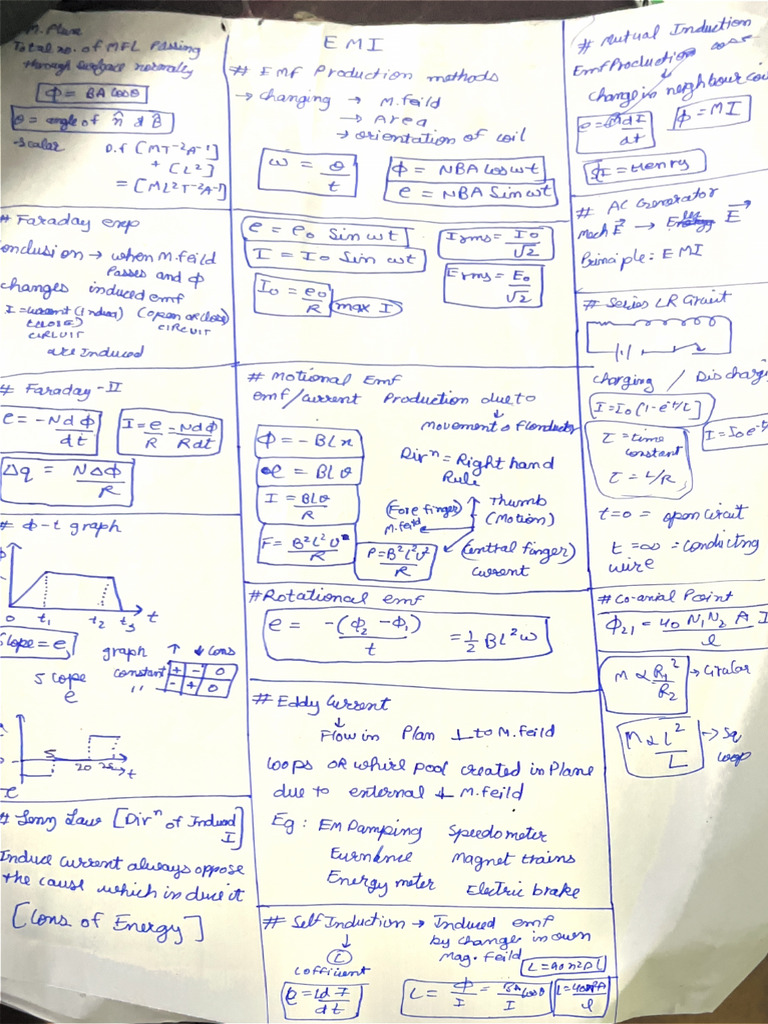 M. Flux
Total no. of MFL Passing
through surface normally
Φ = BA cosθ
θ = angle of n̂ & B⃗
→ scalar D.f [MT⁻²A⁻¹]
+ [L²]
= [ML²T⁻²A⁻¹]
# Faraday exp
onclusion → when M.feild
Passes and φ
changes induced emf
I = current (induced) (open or close)
(close) circuit
circuit
are Induced
# Faraday - II
e = -Ndφ/dt
I = e/R = Ndφ/Rdt
Δq = NΔφ/R
# φ-t graph
0 t₁ t₂ t₃ t
Slope = e
graph ↑ ↓ cons
Slope constant + - 0
e '' - + 0
5 20 25 t
e
# Lenz Law [Dirⁿ of Induced I]
Induce current always oppose
the cause which induce it
[Cons of Energy]
EMI
# EMF Production methods
→ changing → M.feild
→ Area
→ orientation of coil
ω = θ/t
Φ = NBA cosωt
e = NBA Sinωt
e = e₀ Sin ωt
I = I₀ Sin ωt
Irms = I₀/√2
Erms = E₀/√2
I₀ = e₀/R max I
# Motional Emf
emf/current Production due to
↓
movement of Conductor
Φ = -BLx
e = BLv
I = BLv/R
F = B²L²v/R
P = B²L²v²/R
Dirⁿ = Right hand
Rule
(Fore finger)
M.feild
Thumb
(Motion)
(Central finger)
current
# Rotational emf
e = -(Φ₂ - Φ₁)/t = 1/2 BL²ω
# Eddy Current
↓
Flow in Plan ⊥ to M.feild
Loops OR whirl pool created in Plane
due to external ⊥ M.feild
Eg: EM Damping Speedometer
Eurnknce Magnet trains
Energy meter Electric brake
# Self Induction → Induced emf
by change in own
Mag. feild
↓
L
cofficient
L = μ₀n²Al
e = LdI/dt
L = Φ/I = BA cosθ/I
# Mutual Induction
Emf Production
↓
change in neighbour coil
e = MdI/dt
Φ = MI
SI = Henry
# AC Generator
Mech E⃗ → Ele E⃗
Principle: EMI
# Series LR Circuit
charging / Discharging
I = I₀(1-e^-t/τ)
I = I₀e^-t
τ = time
constant
τ = L/R
t=0 = open circuit
t=∞ = conducting
wire
# Co-axial Point
Φ₂₁ = μ₀ N₁N₂ A I/l
M ∝ R₁²/R₂ → Cirular
M ∝ l²/L → Sq
loop